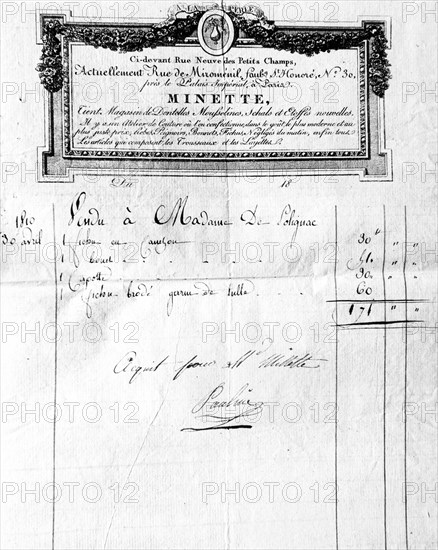 A LA PERLE
Ci-devant Rue Neuve des Petits Champs,
Actuellement Rue de Miroménil, faubg. St. Honoré, No. 30,
près le Palais Impérial, à Paris.
MINETTE,
Tient Magasin de Dentelles Mousselines, Schals et Etoffes nouvelles.
Il y a un Atelier de Couture où l'on confectionne, dans le goût le plus moderne et au
plus juste prix, Robes, Peignoirs, Bonnets, Fichus, Négligés du matin, enfin tous
Les articles qui composent les Trousseaux et les Layettes.
Du 18
1810 Vendu à Madame De Polignac
30 avril 1 fichu en 30 " "
1 51 " "
1 Capotte 30 " "
1 fichu brodé garni de tulle 60
171 " "
Acquit pour Me Minette
Pauline